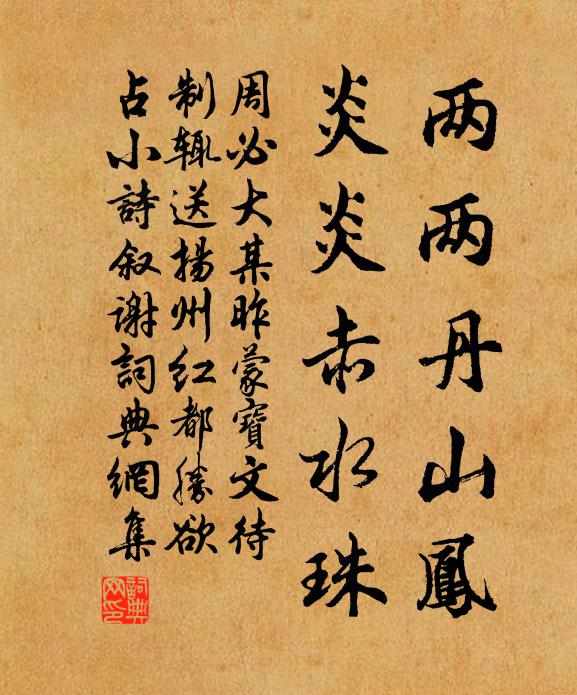 两两丹山鳳
炎炎赤水珠
周必大某昨蒙寶文待
制輒送揚州红都勝欲
占小詩叙谢詞典網集
詞典网印